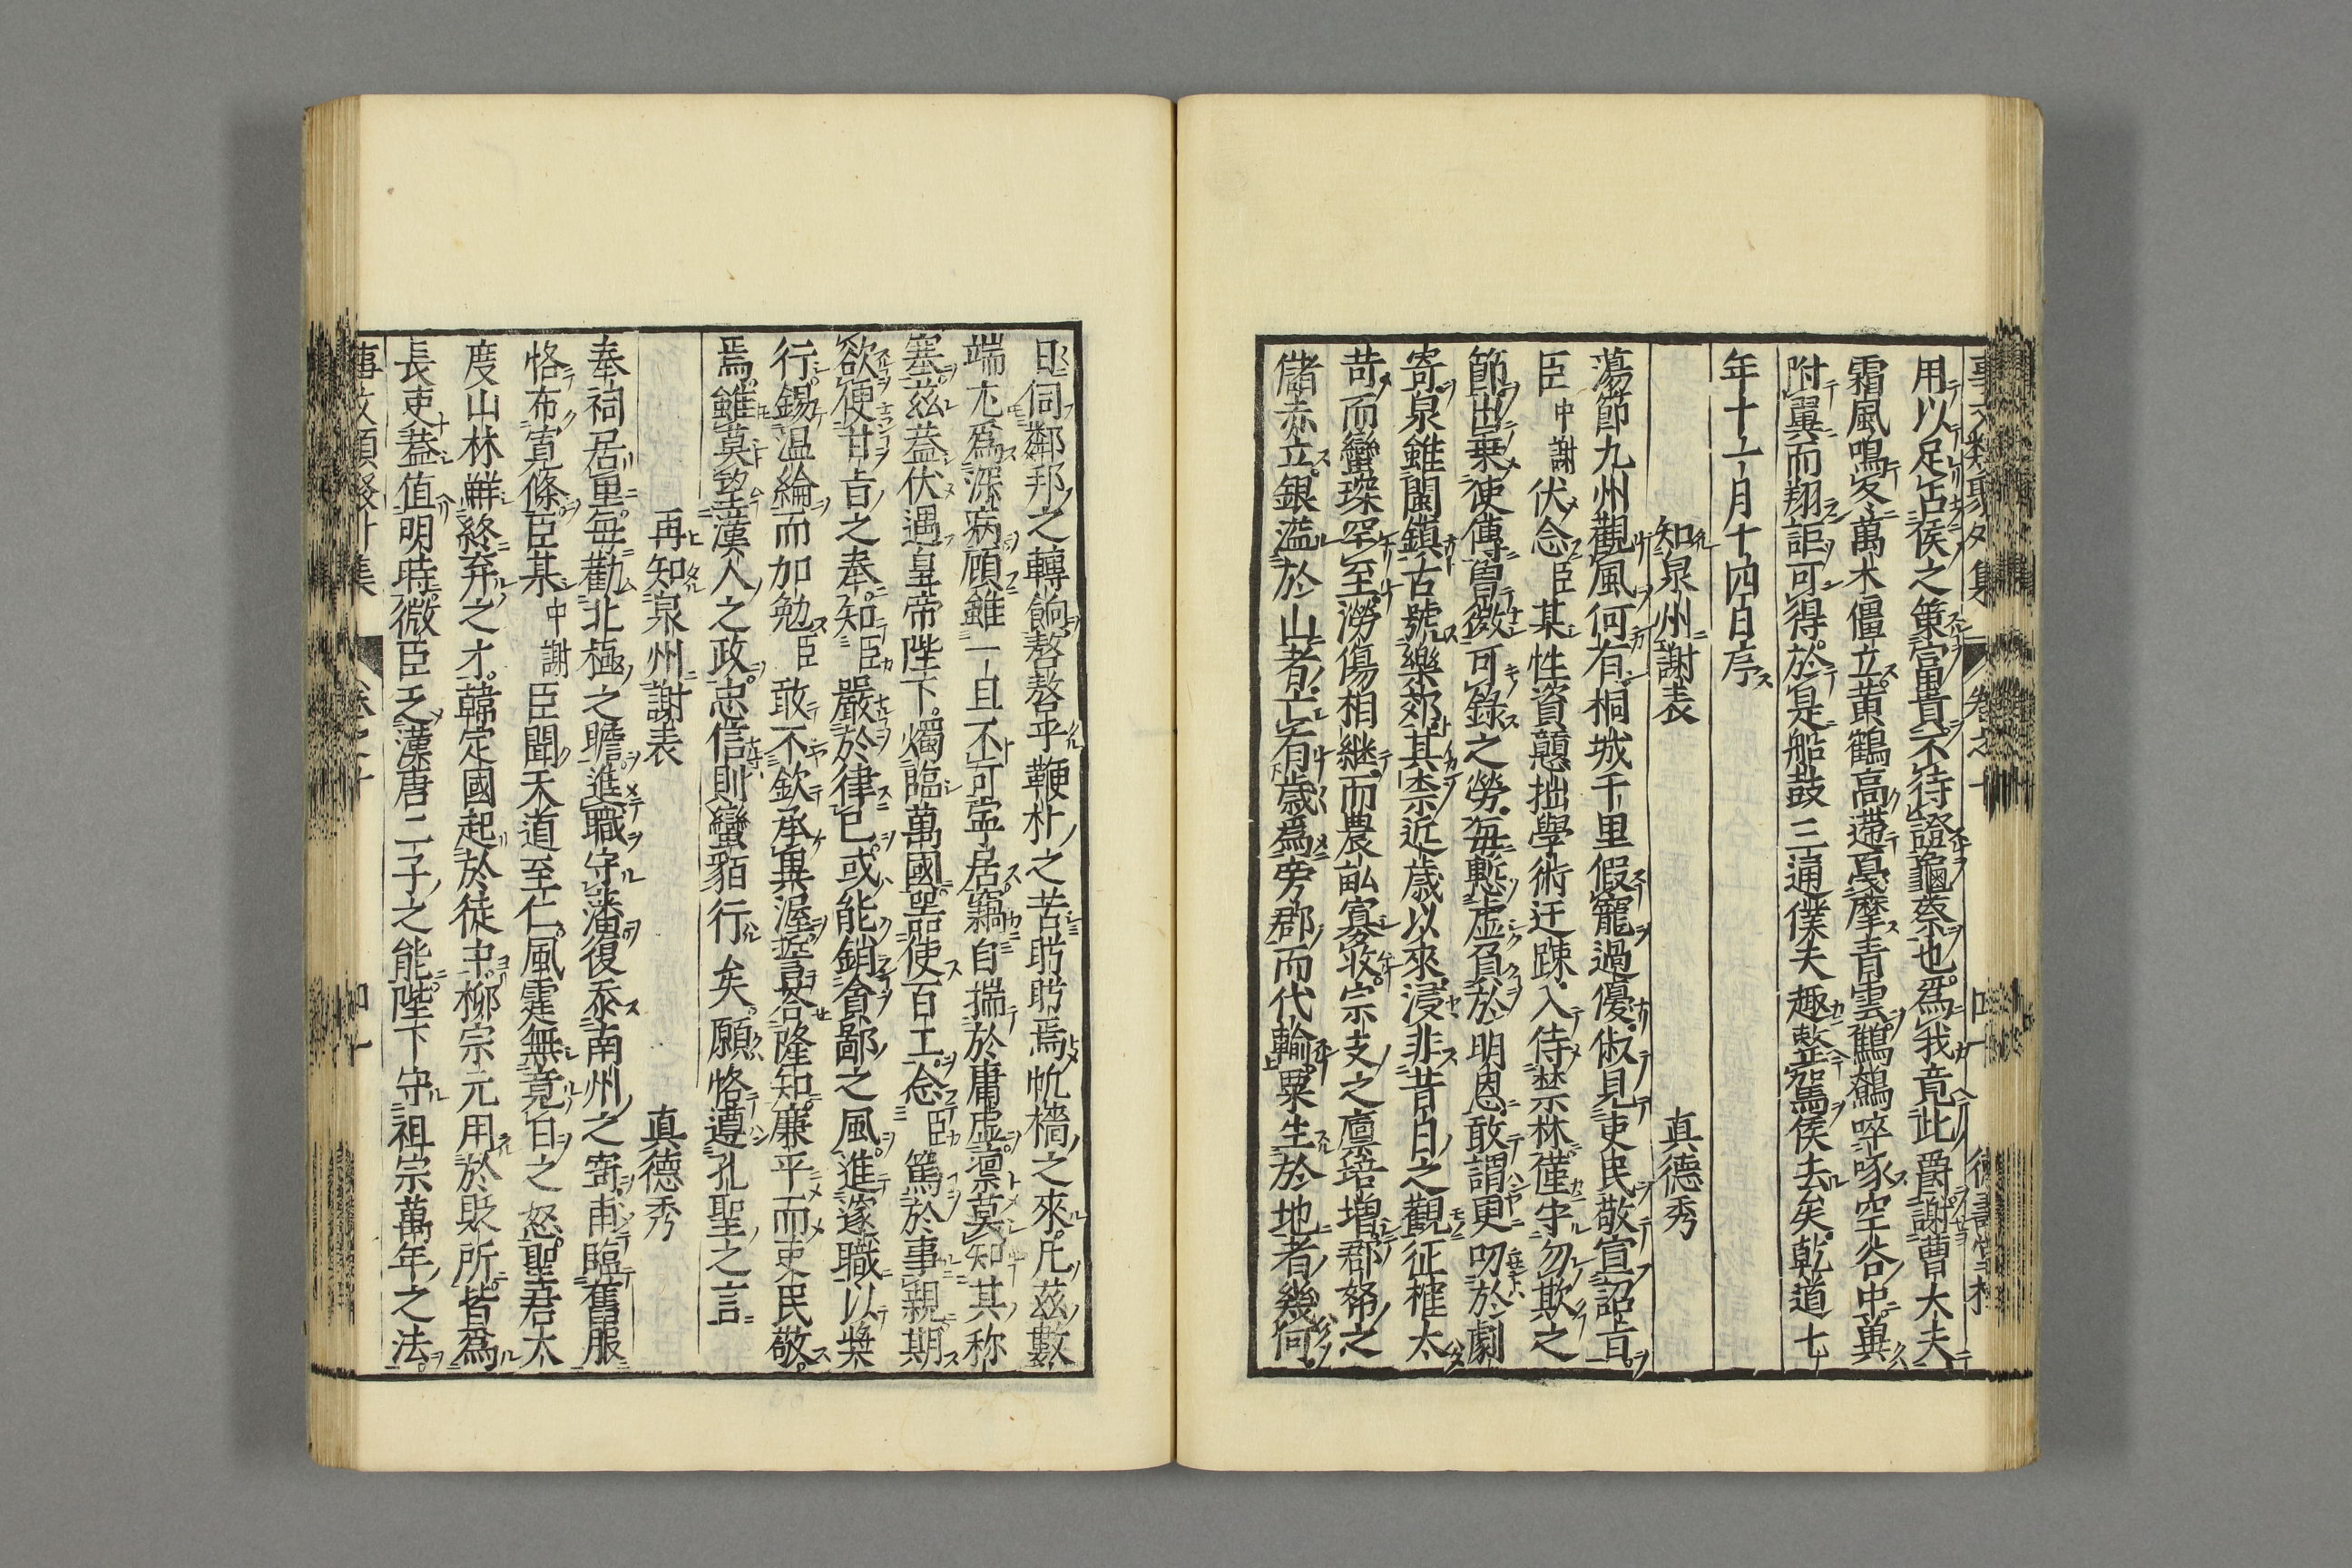 用以足占侯之策富貴不待證龜蔡也爲我竟此爵謝曹大夫
霜風鳴冬萬木僵立黄鶴高遷戛摩青雲鷦鷯啐啄空谷中異
附翼而翔詎可得於是船鼓三通僕夫趣整駕侯去矣乾道七
年十一月十四日序
知泉州謝表 真德秀
蕩節九州觀風何有桐城千里假寵過優俶見吏民敬宣詔旨
臣中謝伏念臣某性資戇拙學術迂踈入侍禁林僅守勿欺之
節出乗使傳曽微可錄之勞每慙虚負於明恩敢謂更叨於劇
寄泉雖閩鎮古號樂郊其柰近歲以來浸非昔日之觀征榷太
苛而蠻琛罕至澇傷相継而農畒寡收宗支之廪培増郡帑之
儲赤立銀濫於山者亡有歳爲旁郡而代輸粟生於地者幾何
日伺鄰邦之轉餉嗸嗸乎鞭朴之苦盻盻焉帆檣之來凡兹數
端尤爲深病顧雖一日不可寧居竊自揣於庸虚凛莫知其称
塞兹蓋伏遇皇帝陛下燭臨萬國器使百工念臣篤於事親期
欲便甘旨之奉知臣嚴於律已或能銷貪鄙之風進邃職以奬
行錫温綸而加勉臣敢不欽承異渥誓荅隆知廉平而吏民敬
焉雖莫望漢人之政忠信則蠻貊行矣願恪遵孔聖之言
再知泉州謝表 真德秀
奉祠居里毎勸北極之瞻進職守藩復忝南州之寄甫臨舊服
恪布寛條臣某中謝臣聞天道至仁風霆無竟日之怒聖君太
度山林鮮終弃之才韓定國起於徒中柳宗元用於貶所皆爲
長吏蓋值明時微臣乏漢唐二子之能陛下守祖宗萬年之法